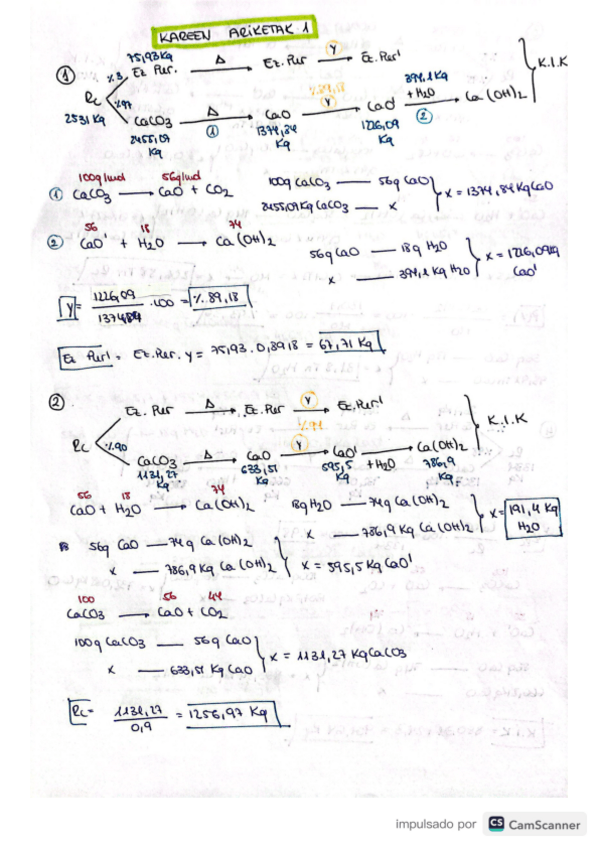 KAREEN ARIKETAK 1
① Rc 2531 Kg
%3 75,93Kg Ez. Pur. → Δ → Ez. Pur → Y → Ez. Pur'
%97 CaCO3 2455,07 Kg → Δ ① → CaO 1374,84 Kg → %89,18 Y → CaO' 1226,09 Kg → 394,1 Kg + H2O ② → Ca(OH)2
K.I.K
① 100g/mol CaCO3 → 56g/mol CaO + CO2
100g CaCO3 — 56g CaO
2455,07 Kg CaCO3 — x
x = 1374,84 Kg CaO
② 56 CaO' + 18 H2O → 74 Ca(OH)2
56g CaO — 18g H2O
x — 394,1 Kg H2O
x = 1226,09 Kg CaO'
Y = 1226,09 / 1374,84 . 100 = %89,18
Ez Pur' = Ez. Pur. Y = 75,93 . 0,8918 = 67,71 Kg
②
Ez. Pur → Δ → Ez. Pur → Y → Ez. Pur'
Rc
%90 CaCO3 1131,27 Kg → Δ → CaO 633,51 Kg → %94 Y → CaO' 595,5 Kg → + H2O → Ca(OH)2 786,9 Kg
K.I.K
56 CaO + 18 H2O → 74 Ca(OH)2
18g H2O — 74g Ca(OH)2
x — 786,9 Kg Ca(OH)2
x = 191,4 Kg H2O
56g CaO — 74g Ca(OH)2
x — 786,9 Kg Ca(OH)2
x = 595,5 Kg CaO'
100 CaCO3 → 56 CaO + 44 CO2
100g CaCO3 — 56g CaO
x — 633,51 Kg CaO
x = 1131,27 Kg CaCO3
Rc = 1131,27 / 0,9 = 1256,97 Kg
impulsado por CS CamScanner